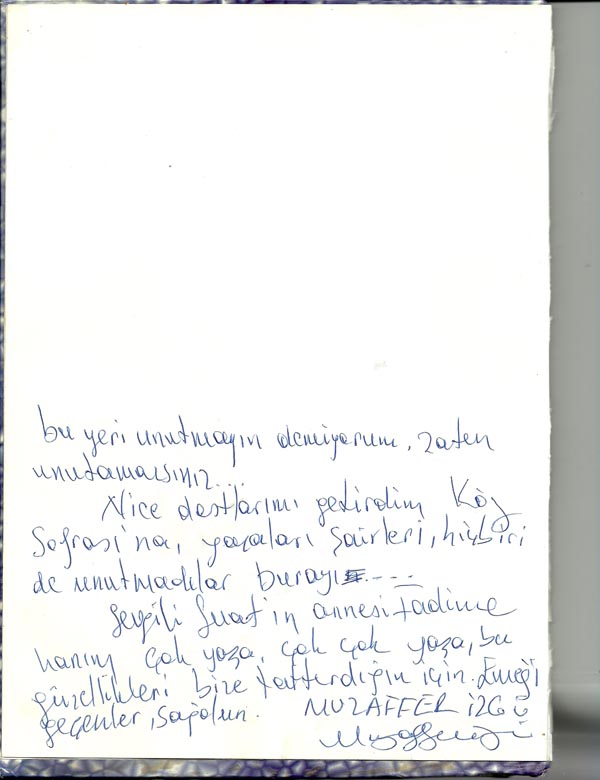 bu yeri unutmayın demiyorum, zaten
unutamassınız...
Nice dostlarımı getirdim Köy
Sofrası'na, yazarları şairleri, hiçbiri
de unutmadılar burayı ...
Sevgili Suat'ın annesi Hadime
hanım çok yaşa, çok çok yaşa, bu
güzellikleri bize tattırdığın için. Emeği
geçenler, sağolun. MUZAFFER İZGÜ